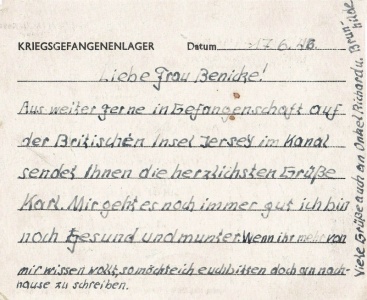 KRIEGSGEFANGENENLAGER Datum 17.6.46.
Liebe Frau Benicke!
Aus weiter ferne in Gefangenschaft auf
der Britischen Insel Jersey im Kanal
sendet Ihnen die herzlichsten Grüße
Karl. Mir geht es noch immer gut ich bin
noch Gesund und munter. Wenn ihr mehr von
mir wissen wollt, so möchte ich euch bitten doch an nach-
hause zu schreiben.
Viele Grüße auch an Onkel Richard u. Brun
hilde